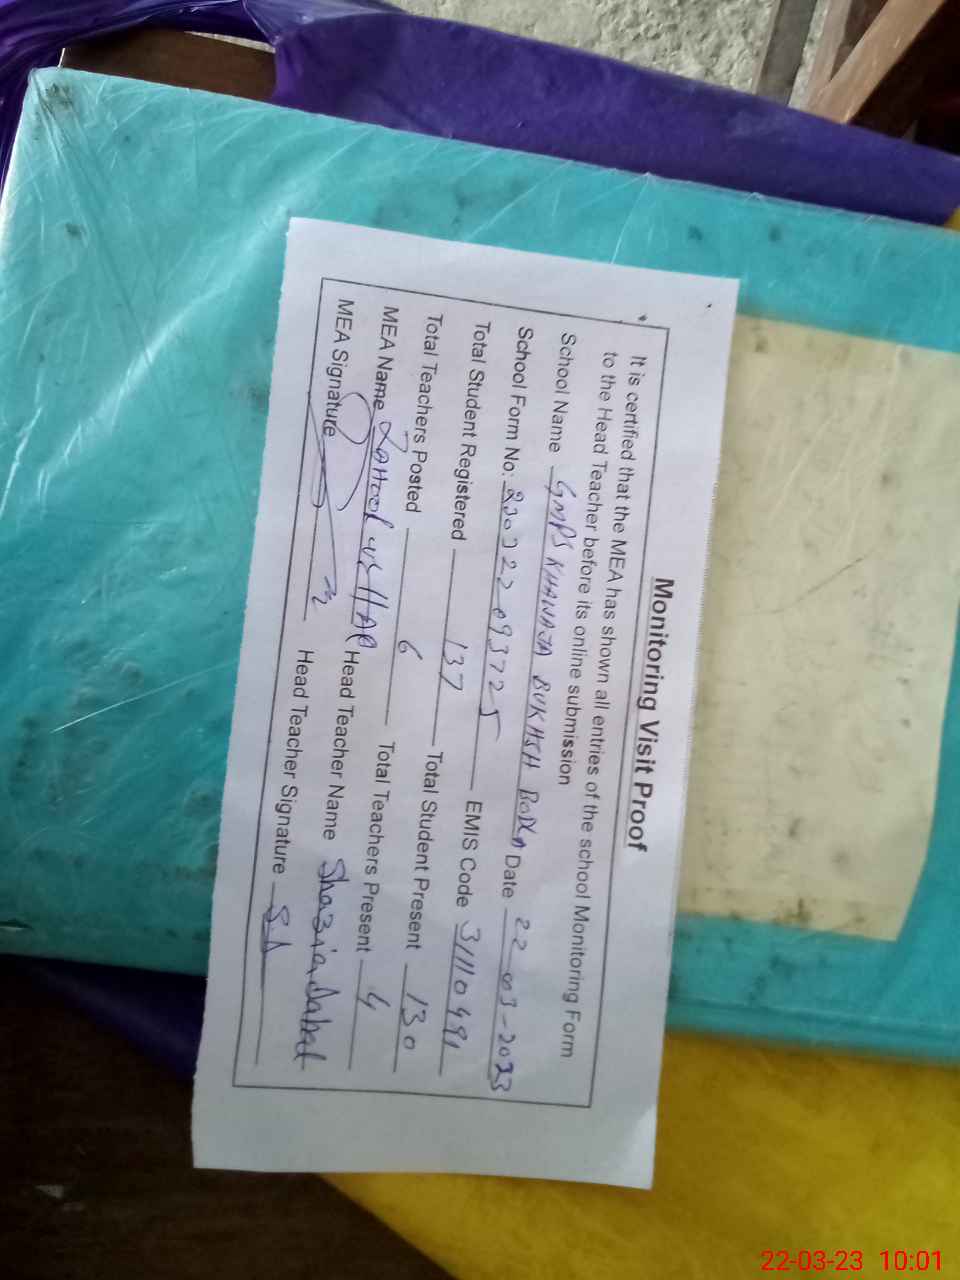 Monitoring Visit Proof
It is certified that the MEA has shown all entries of the school Monitoring Form
to the Head Teacher before its online submission
School Name GMPS KHAWAJA BUKHSH BODLA Date 22-03-2023
School Form No: 230322093725 EMIS Code 31110491
Total Student Registered 137 Total Student Present 130
Total Teachers Posted 6 Total Teachers Present 4
MEA Name Head Teacher Name Shazia
MEA Signature Head Teacher Signature S.A
22-03-23 10:01